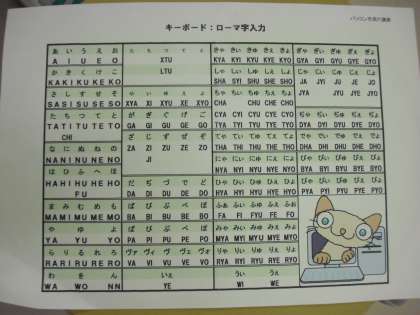 キーボード：ローマ字入力
あ い う え お
A I U E O
か き く け こ
KA KI KU KE KO
さ し す せ そ
SA SI SU SE SO
た ち つ て と
TA TI TU TE TO
CHI
な に ぬ ね の
NA NI NU NE NO
は ひ ふ へ ほ
HA HI HU HE HO
FU
ま み む め も
MA MI MU ME MO
や ゆ よ
YA YU YO
ら り る れ ろ
RA RI RU RE RO
わ を ん
WA WO NN
XTU
LTU
XYA XI XYU XE XYO
が ぎ ぐ げ ご
GA GI GU GE GO
ざ じ ず ぜ ぞ
ZA ZI ZU ZE ZO
JI
だ ぢ づ で ど
DA DI DU DE DO
ば び ぶ べ ぼ
BA BI BU BE BO
ぱ ぴ ぷ ぺ ぽ
PA PI PU PE PO
ヴァ ヴィ ヴ ヴェ ヴォ
VA VI VU VE VO
いぇ
YE
きゃ きぃ きゅ きぇ きょ
KYA KYI KYU KYE KYO
しゃ しぃ しゅ しぇ しょ
SYA SYI SYU SYE SYO
SHA SHU SHE SHO
ちゃ ちぃ ちゅ ちぇ ちょ
CHA CHU CHE CHO
CYA CYI CYU CYE CYO
TYA TYI TYU TYE TYO
てゃ てぃ てゅ てぇ てょ
THA THI THU THE THO
にゃ にぃ にゅ にぇ にょ
NYA NYI NYU NYE NYO
ひゃ ひぃ ひゅ ひぇ ひょ
HYA HYI HYU HYE HYO
ふぁ ふぃ ふ ふぇ ふぉ
FA FI FYU FE FO
みゃ みぃ みゅ みぇ みょ
MYA MYI MYU MYE MYO
りゃ りぃ りゅ りぇ りょ
RYA RYI RYU RYE RYO
うぃ うぇ
WI WE
ぎゃ ぎぃ ぎゅ ぎぇ ぎょ
GYA GYI GYU GYE GYO
じゃ じぃ じゅ じぇ じょ
JA JYI JU JE JO
JYA JYU JYE JYO
でゃ でぃ でゅ でぇ でょ
DHA DHI DHU DHE DHO
びゃ びぃ びゅ びぇ びょ
BYA BYI BYU BYE BYO
ぴゃ ぴぃ ぴゅ ぴぇ ぴょ
PYA PYI PYU PYE PYO